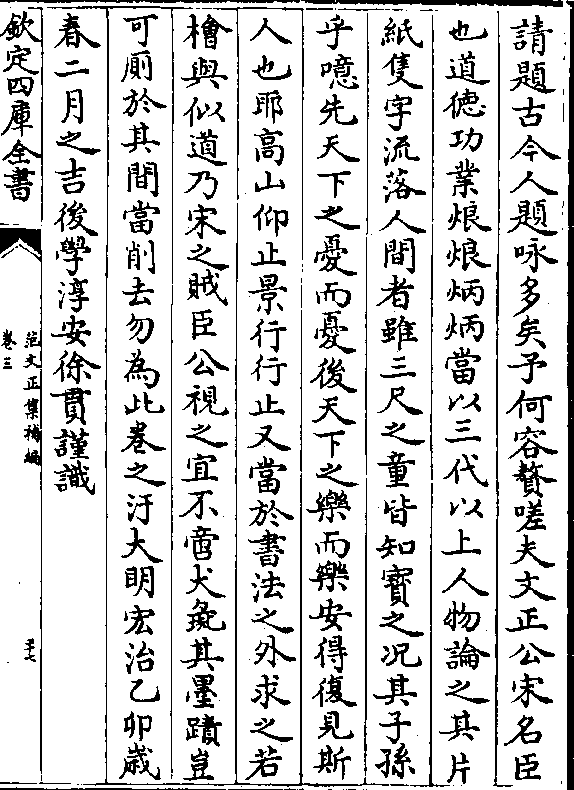 請題古今人題咏多矣予何容贅嗟夫文正公宋名臣
也道德功業烺烺炳炳當以三代以上人物論之其片
紙隻字流落人間者雖三尺之童皆知寳之况其子孫
乎噫先天下之憂而憂後天下之樂而樂安得復見斯
人也耶高山仰止景行行止又當於書法之外求之若
檜與似道乃宋之賊臣公視之宜不啻犬彘其墨蹟豈
可厠於其間當削去勿為此巻之汙大明宏治乙卯歲
春二月之吉後學淳安徐貫謹識
欽定四庫全書
范文正集補編
卷三
三十七